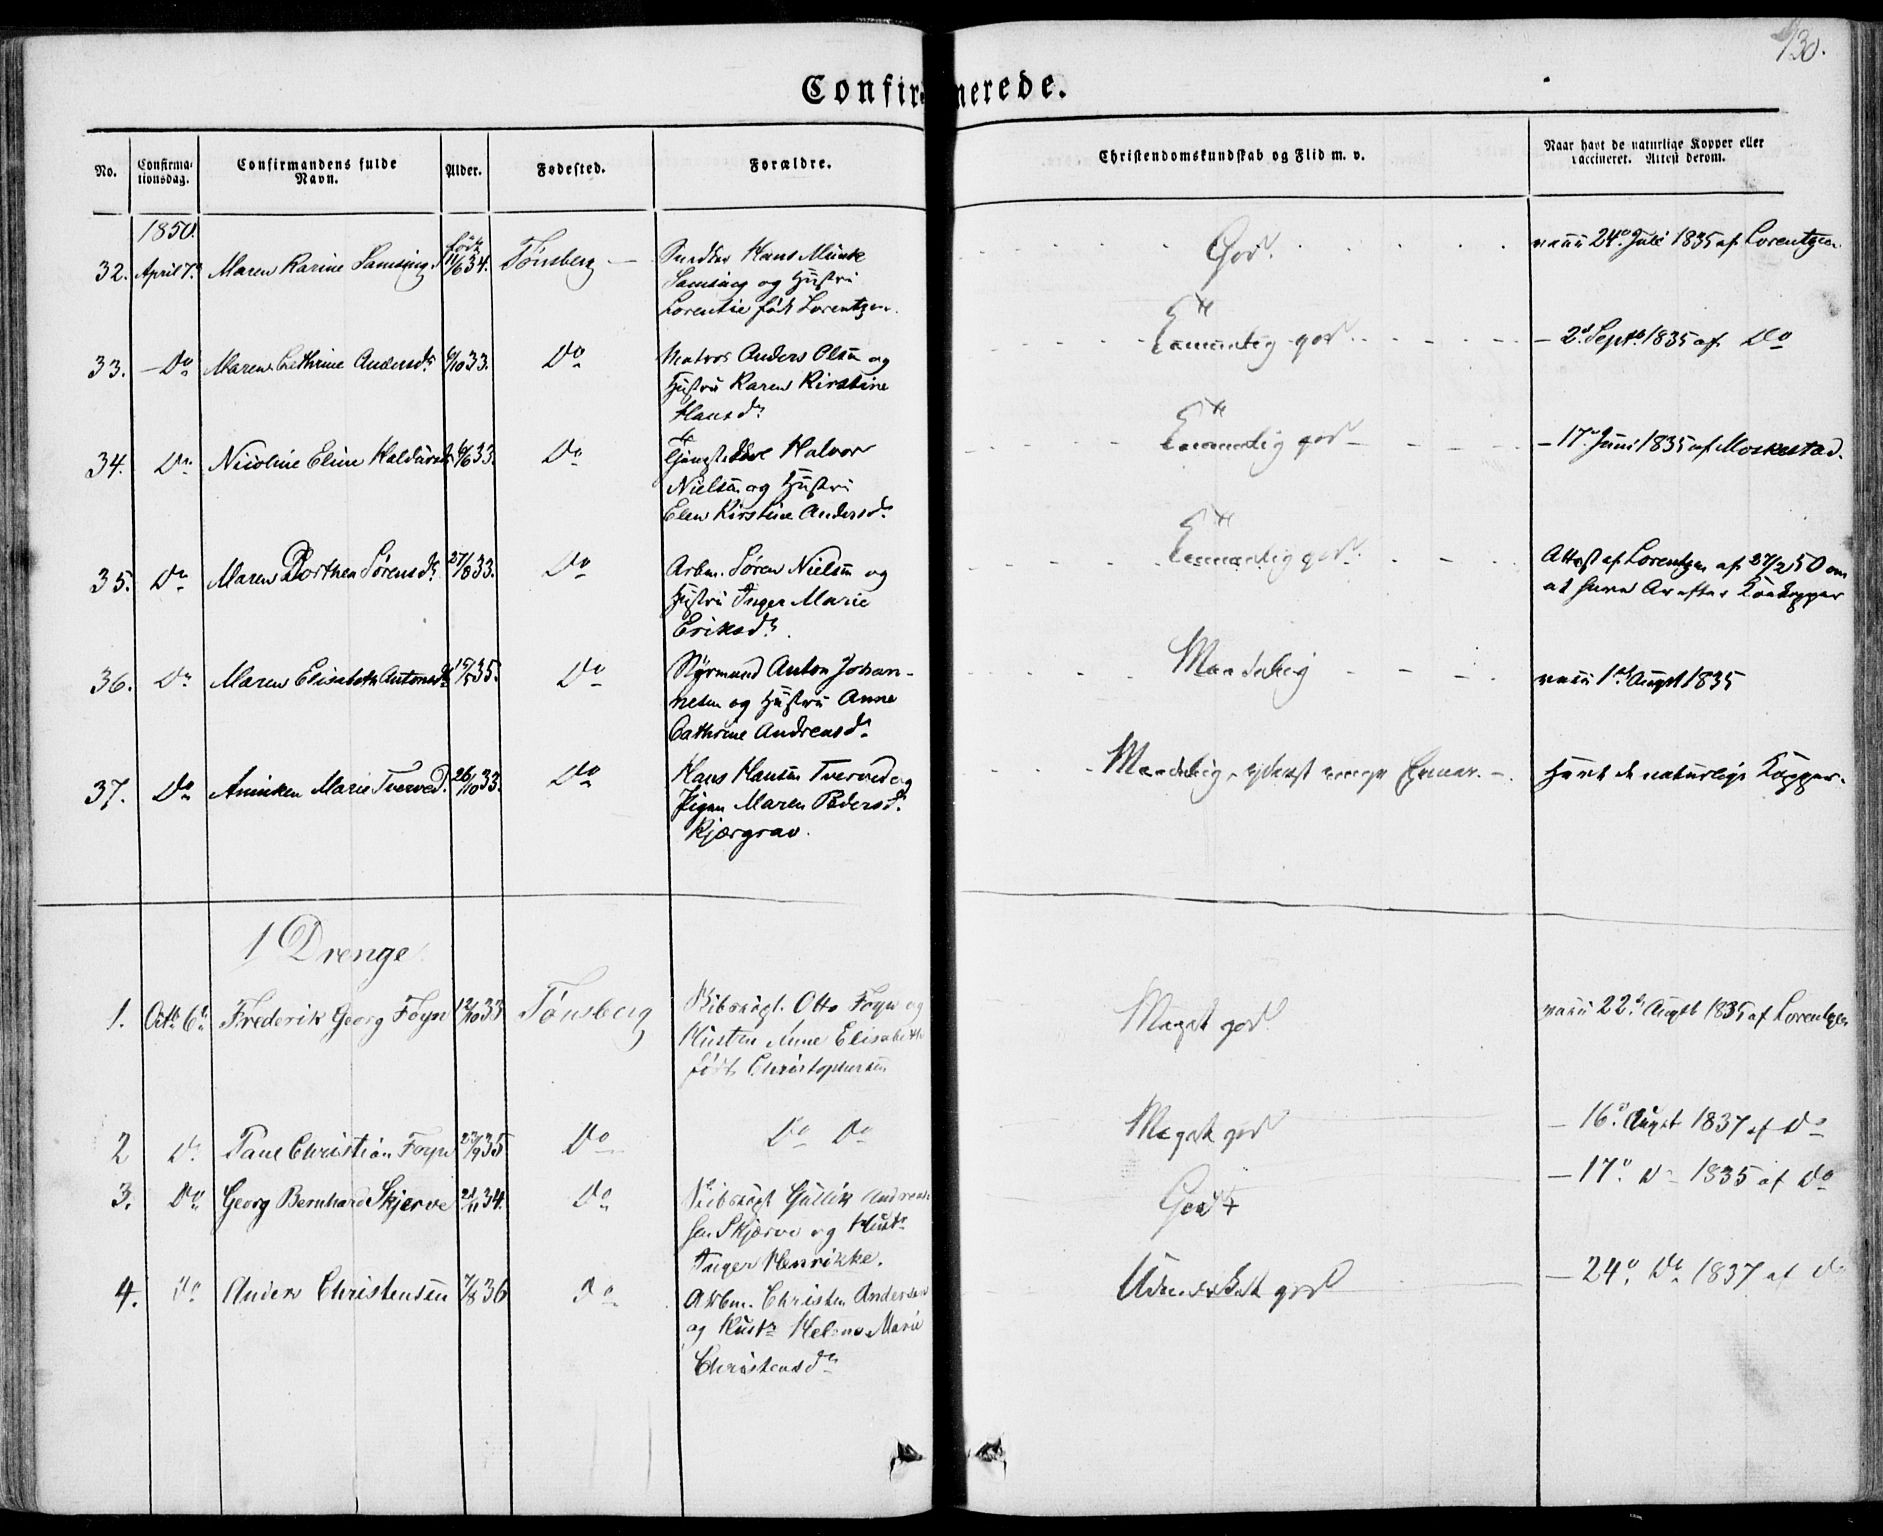 130.
Confirmerede.
No.
Confirma-
tionsdag.
Confirmandens fulde
Navn.
Alder.
Fødested.
Forældre.
Christendomskundskab og Flid m. v.
Naar havt de naturlige Kopper eller
vaccineret. Attest derom.
1850.
32. April 7. Maren Karine Samsing. født 11/6 34. Tønsberg — Hans Munk
Samsing og Hustru
Lorentse født Lorentzen.
God.
vacc 24. Juli 1835 af Lorentzen.
33. — Do Maren Cathrine Andersdr 6/10 33. Do Matros Anders Olsen og
Hustru Karen Kirstine
Hansdr
Temmelig god.
— 2. Septb 1835 af Do
34. Do Nicoline Eline Haldorsdr 6/6 33. Do Halvor
Nielsen og Hustru
Elen Kirstine Andersdr
Temmelig god
— 17. Juni 1835 af Moskestad.
35. Do Maren Dorthea Sørensdr 27/8 33. Do Arbm. Søren Nielsen og
Hustru Inger Marie
Eriksdr.
Temmelig god.
Attest af Lorentzen af 27/2 50 om
at have Ar efter Kokopper
36. Do Maren Elisabeth Antonsdr 15/5 35. Do Styrmand Anton Johan-
nesen og Hustru Anne
Cathrine Andreasdr
Maadelig
vacc 1 August 1835
37. Do Anniken Marie Tverved. 26/10 33. Do Hans Hansen Tverved og
Pigen Maren Pedersdr
Kjærgrav.
Maadelig,
Havt de naturlige Kopper.
1 Drenge
1. Octb 6 Frederik Georg Foyn 12/10 33 Tønsberg Skibskapt. Otto Foyn og
Hustru Anne Elisabeth
født Christophersen
Meget god
vacc 22. August 1835 af Lorentzen
2 Do Paul Christian Foyn 27/9 35 Do Do Do
Meget god
— 16. August 1837 af Do
3. Do Georg Bernhard Skjærve 21/11 34. Do Skibskapt Gullik Andrea-
sen Skjærve og Hust
Inger Henrikke.
Godt
— 17. Do 1835 af Do
4. Do Anders Christensen 7/8 36 Do Arbm. Christen Andersen
og Hustr Helene Marie
Christensdr
Udmærket god
— 24. Do 1837 af Do